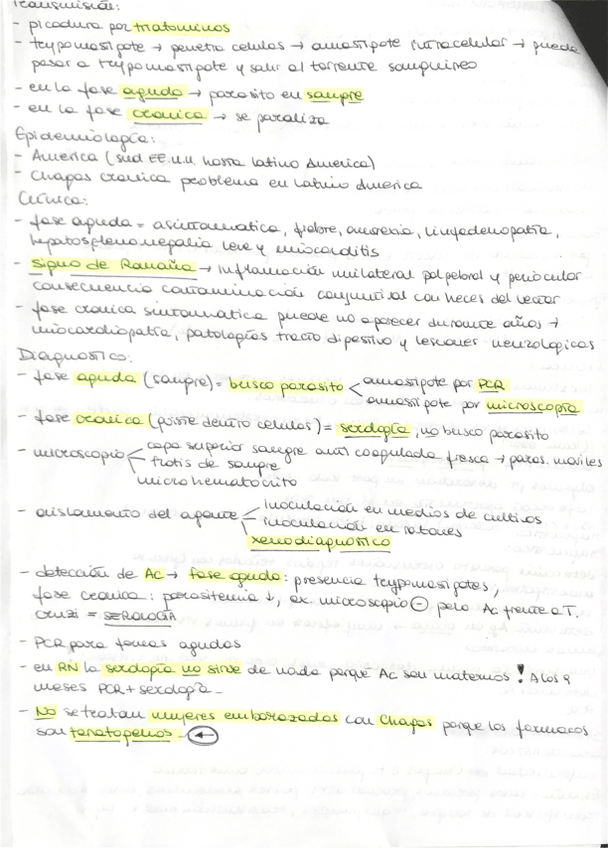 Transmisión:
- picadura por triatominos
- trypomastipote → penetra celulas → amastipote intracelular → puede
pasar a trypomastipote y salir al torrente sanguineo
- en la fase aguda → parasito en sangre
- en la fase cronica → se paraliza
Epidemiología:
- America (sud EE.U.U. hasta latino America)
- Chagas cronica problema en Latino America
Clínica:
- fase aguda = asintomatica, fiebre, anorexia, linfadenopatía,
hepatosplenomegalia leve y miocarditis
- Signo de Romaña → Inflamación unilateral palpebral y periocular
consecuencia contaminación conjuntival con heces del vector
- fase cronica sintomatica puede no aparecer durante años →
miocardiopatía, patologías tracto digestivo y lesiones neurologicas
Diagnostico:
- fase aguda (sangre) = busco parasito < amastipote por PCR
amastipote por microscopía
- fase cronica (quiste dentro celulas) = serología, no busco parasito
- microscopio < capa superior sangre anti coagulada fresca → paras. moviles
frotis de sangre
microhematocrito
- aislamiento del agente < inoculación en medios de cultivos
inoculación en ratones
xenodiagnostico
- detección de Ac → fase aguda: presencia trypomastipotes,
fase cronica: parasitemia ↓, ex. microscopio ⊖ pero Ac frente a T.
cruzi = SEROLOGÍA
- PCR para formas agudas
- en RN la serología no sirve de nada porque Ac son maternos! A los 9
meses PCR + serología.
- No se tratan mujeres embarazadas con Chagas porque los farmacos
son teratogenos. ←